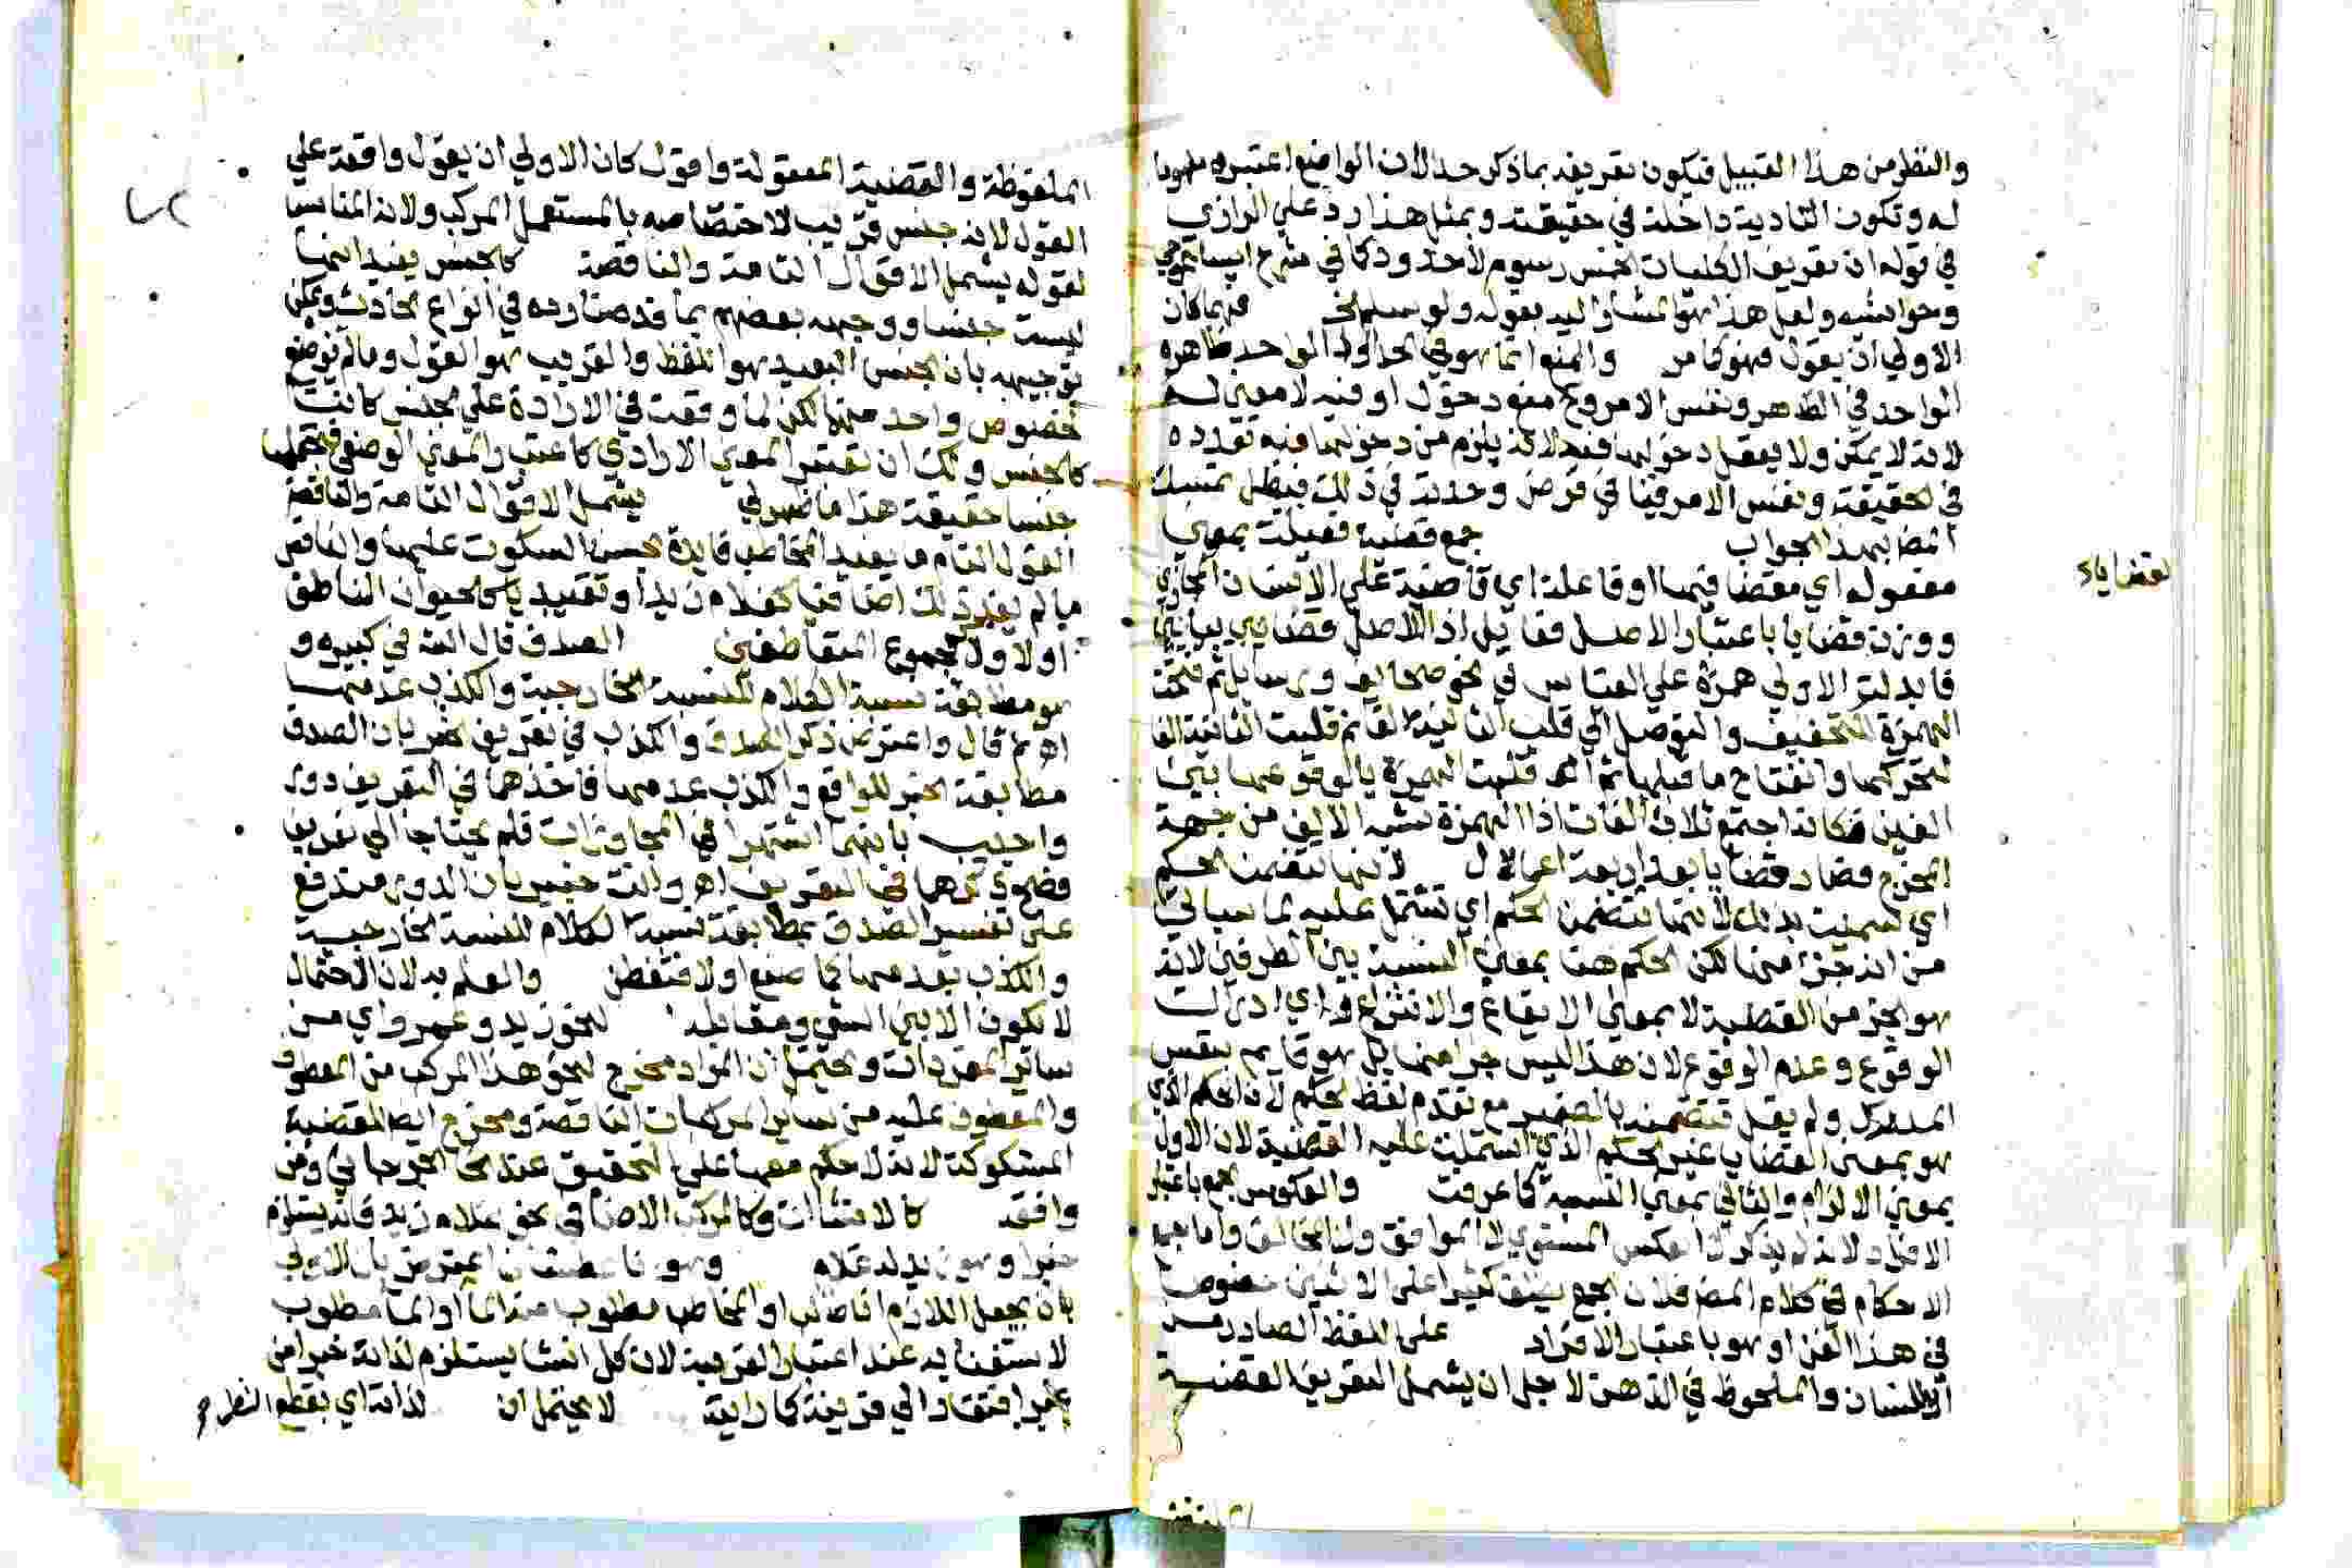 والنظر من هذا القبيل فيكون تعريفه بما ذكر حدا لان الواضع اعتبره مفهوما
له وتكون التادية داخلة في حقيقته وبمثل هذا رد علي الرازي
في قوله ان تعريف الكليات الخمس رسوم لا حدود كما في شرح ايساغوجي
وحواشيه ولعل هذا هو المشار اليه بقوله ولو سلم الخ فهما كان
الاولي ان يقول فهو كما مر والمنوا نما هو في الحد اولد الواحد ظاهره
الواحد في الظاهر ونفس الامر وح مفرد حول او فيه لا معني له
لانه لا يمكن ولا يعقل دخولها فيه لانه يلزم من دخولها فيه تعدده
في الحقيقة ونفس الامر فينا في فرض وحدته في ذلك فبطل تمسك
المض بهذا الجواب جمع قضية فعيلة بمعني
لقضاياء
مفعوله اي مقضا فيها او فاعلة اي قاضية علي الانسان المجازي
ووزن قضايا باعتبار الاصل فعايل اذ الاصل قضايي بيائين
فابدلت الاولي همزة علي القياس في نحو صحايف ورسايل ثم فتحت
الهمزة للتخفيف والتوصل الي قلب الثانية الفا ثم قلبت الثانية الفا
لتحركها وانفتاح ما قبلها ثم قلبت الهمزة يا لوقوعها بين
الفين فكانه اجتمع ثلاث الفات اذ الهمزة تشبه الالف من جهة
المخرج فصار قضايا بعد اربعة اعمال لانها تتضمن الحكم
اي سميت بذلك لانها تتضمن الحكم اي تشتمل عليه لما سياتي
من انه جزء منها لكن الحكم هنا بمعني النسبة بين الطرفين لانه
هو الجز من القضية لا بمعني الايقاع والانتزاع اي ادراك
الوقوع وعدم الوقوع لان هذا ليس جزا منها بل هو قايم بنفس
المدرك ولم يقل تتضمنه بالضمير مع تقدم لفظ الحكم لان الحكم الذي
هو بمعني القضايا غير الحكم الذي اشتملت عليه القضية لان الاول
بمعني الالزام والثاني بمعني النسبة كما عرفت والعكوس جمع باعتبار
الافراد لانه لم يذكر الا عكس المستوي لا الموافق ولا المخالف واما جمع
الاحكام في كلام المض فلان الجمع يطلق كثيرا علي الاثنين خصوصا
في هذا الفن او هو باعتبار الافراد علي اللفظ الصادر من
اللسان والملحوظ في الذهن لاجل ان يشمل التعريف القضية
الملفوظة والقضية المعقولة واقول كان الاولي ان يقول واقعة علي
القول لانه جنس قريب لاختصاصه بالمستعمل المركب ولانه المناسب
لقوله يشمل الاقوال التامة والناقصة كالجنس يفيد انها
ليست جنسا ووجهه بعضهم بما قدمنا رده في انواع الحادث ويمكن
توجيهه بان الجنس البعيد هو اللفظ والقريب هو القول وما لم توضع
لخصوص واحد منها لكن لما وقعت في الارادة علي الجنس كانت
كالجنس ولك ان تعتبر المعني الارادي كاعتبار المعني الوضعي فتجعلها
جنسا حقيقة هذا ما ظهر لي يشمل الاقوال التامة والناقصة
القول التام ما يفيد المخاطب فايدة يحسن السكوت عليها والناقص
ما لم يفد ذلك اضافيا كغلام زيد او تقييديا كالحيوان الناطق
اولا ولا كمجموع المتعاطفين الصدق قال الشه في كبيره و
هو مطابقة نسبة الكلام للنسبة الخارجية والكذب عدمها
اه ثم قال واعترض ذكر الصدق والكذب في تعريف الخبر بان الصدق
مطابقة الخبر للواقع والكذب عدمها فاخذهما في التعريف دور
واجيب بانهما اشتهرا في المحاورات فلم يحتاجا الي تعريف
فصح ذكرهما في التعريف اه وانت خبير بان الدور مندفع
علي تفسير الصدق بمطابقة نسبة الكلام للنسبة الخارجية
والكذب بعدمها كما صنع اولا فتفطن والعلم به لان الاحتمال
لا يكون الا بين الشي ومقابله لنحو زيد وعمرو اي من
ساير المفردات ويحتمل ان المراد مخرج لنحو هذا المركب من المعطوف
والمعطوف عليه من ساير المركبات الناقصة ومخرج ايضا للقضية
المشكوكة لانه لا حكم معها علي التحقيق عند الجرجاني ومن
وافقه كالانشاات وكالمركب الاضافي نحو غلام زيد فانه يستلزم
خبرا وهو زيد له غلام وهو
بان يجعل اللازم انا طالب او المخاطب مطلوب منه الما او الما مطلوب
لاستفنايه عند اعتبار القرينة لان كل انشا يستلزم لذاته خبرا من
غير افتقار الي قرينة كما رايت لا يحتمل ان لذاته اي بقطع النظر